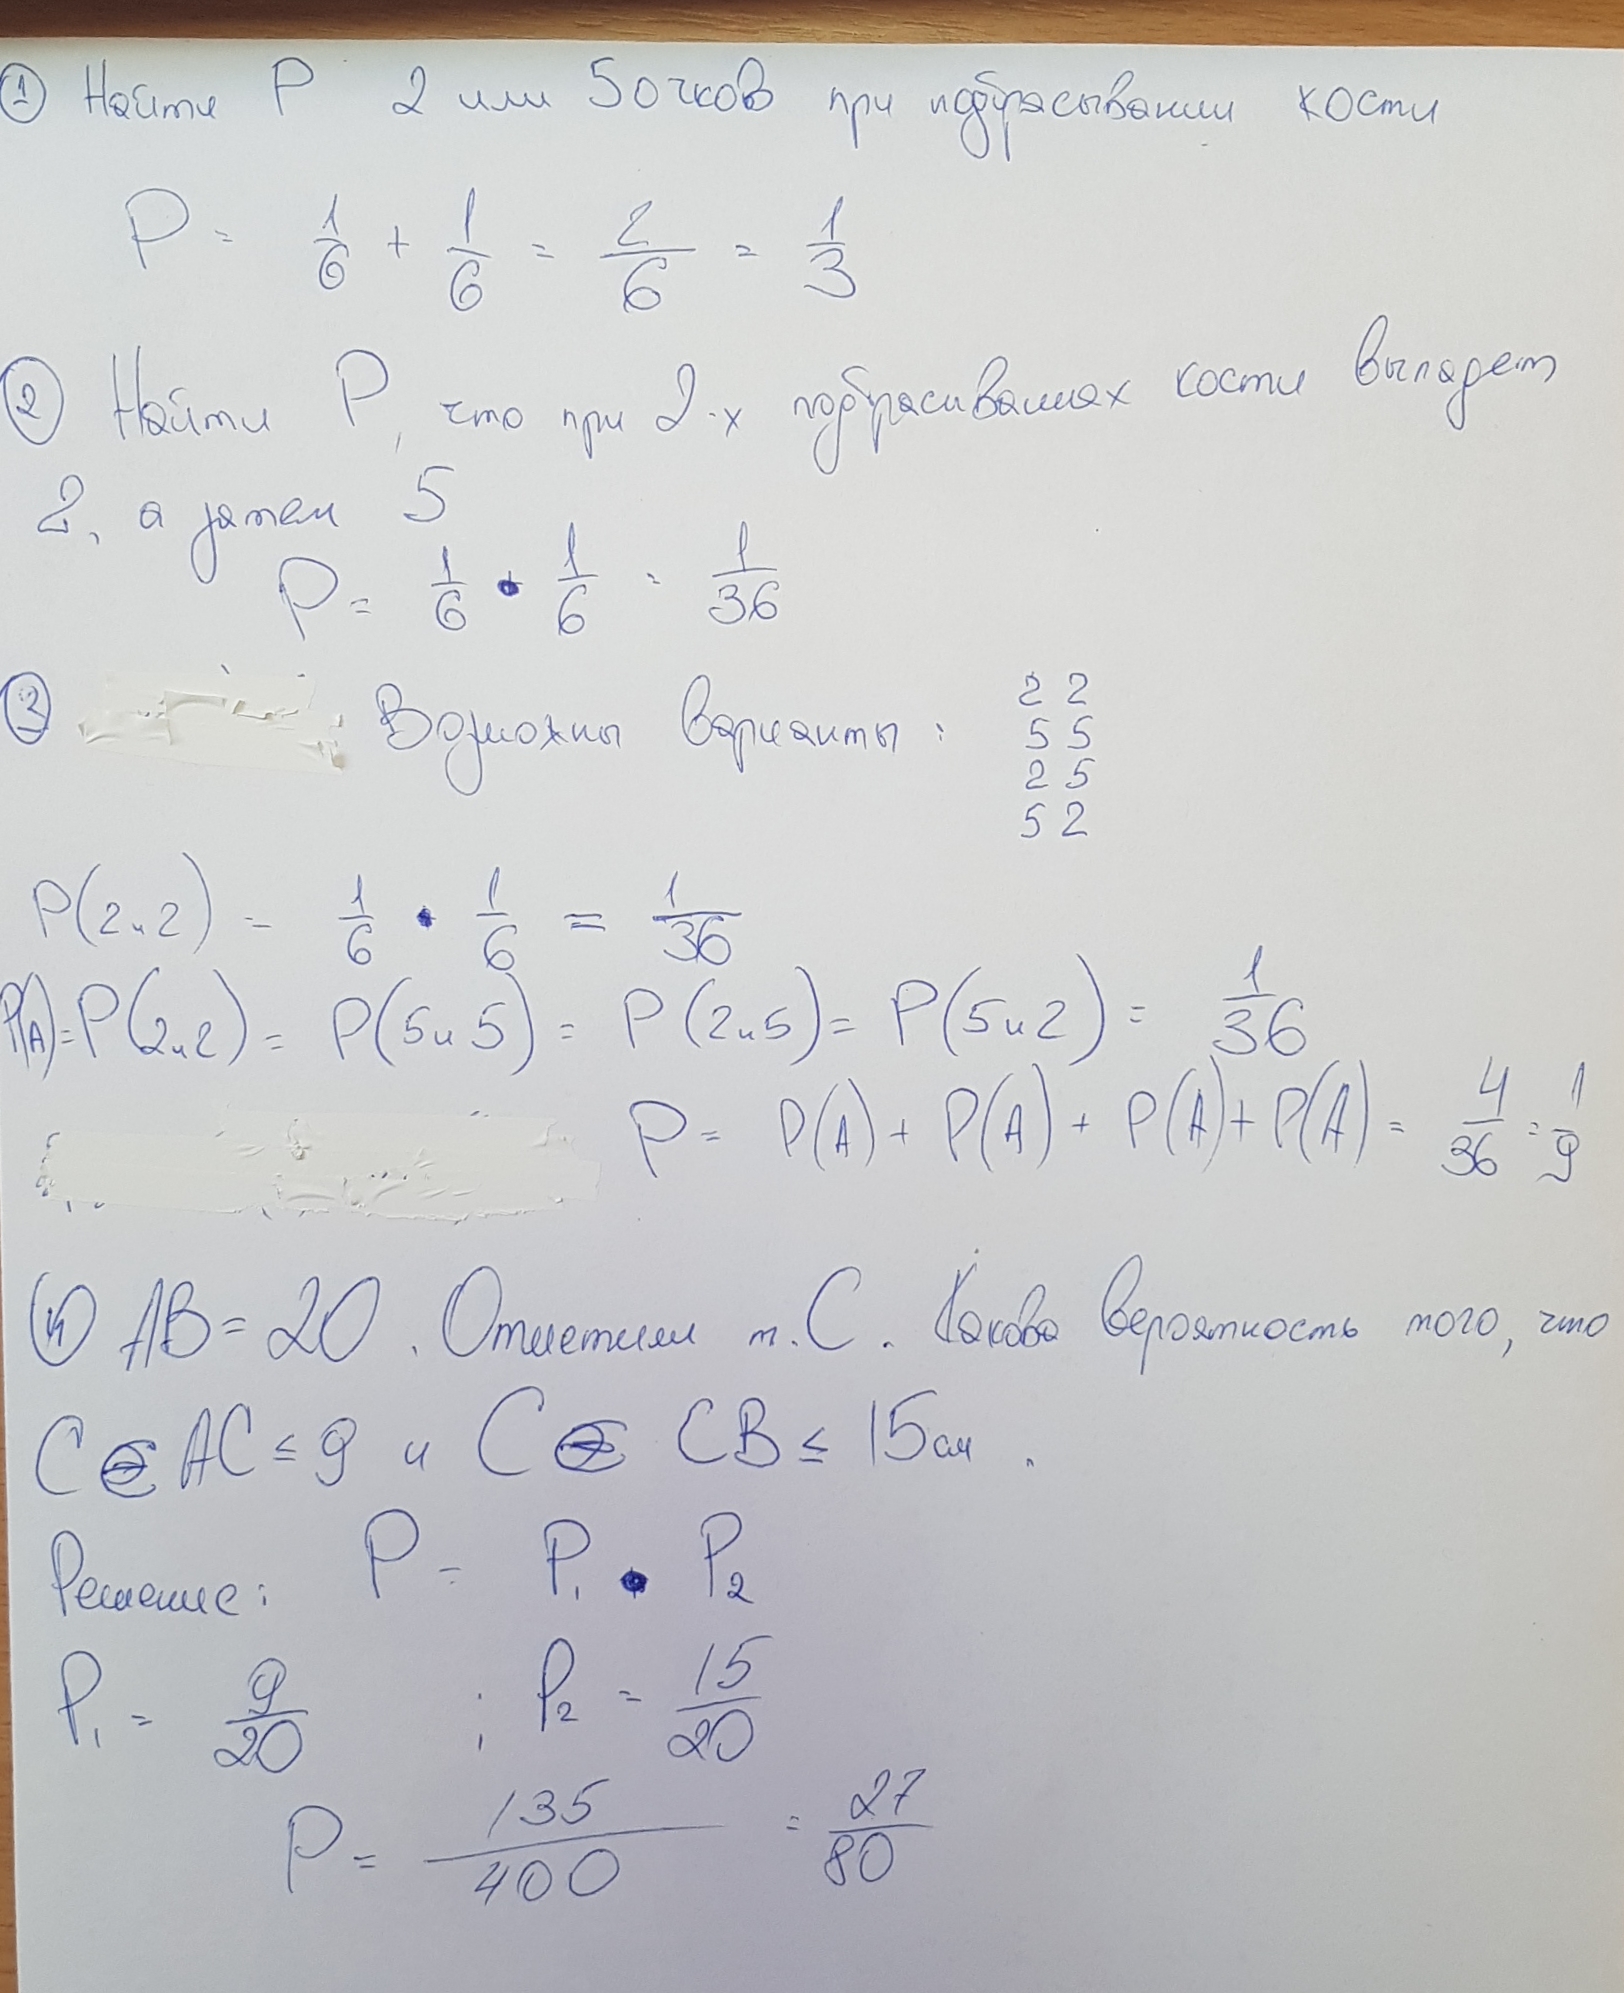 ① Найти P 2 или 5 очков при подбрасывании кости
P = 1/6 + 1/6 = 2/6 = 1/3
② Найти P, что при 2-х подбрасиваниях кости выпадет
2, а затем 5
P = 1/6 • 1/6 = 1/36
③ Возможны варианты :
2 2
5 5
2 5
5 2
P(2 и 2) = 1/6 • 1/6 = 1/36
P(A) = P(2 и 2) = P(5 и 5) = P(2 и 5) = P(5 и 2) = 1/36
P = P(A) + P(A) + P(A) + P(A) = 4/36 = 1/9
④ AB = 20. Отметили т. C. Какова вероятность того, что
C ∈ AC ≤ 9 и C ∈ CB ≤ 15 см.
Решение: P = P₁ • P₂
P₁ = 9/20 ; P₂ = 15/20
P = 135/400 = 27/80